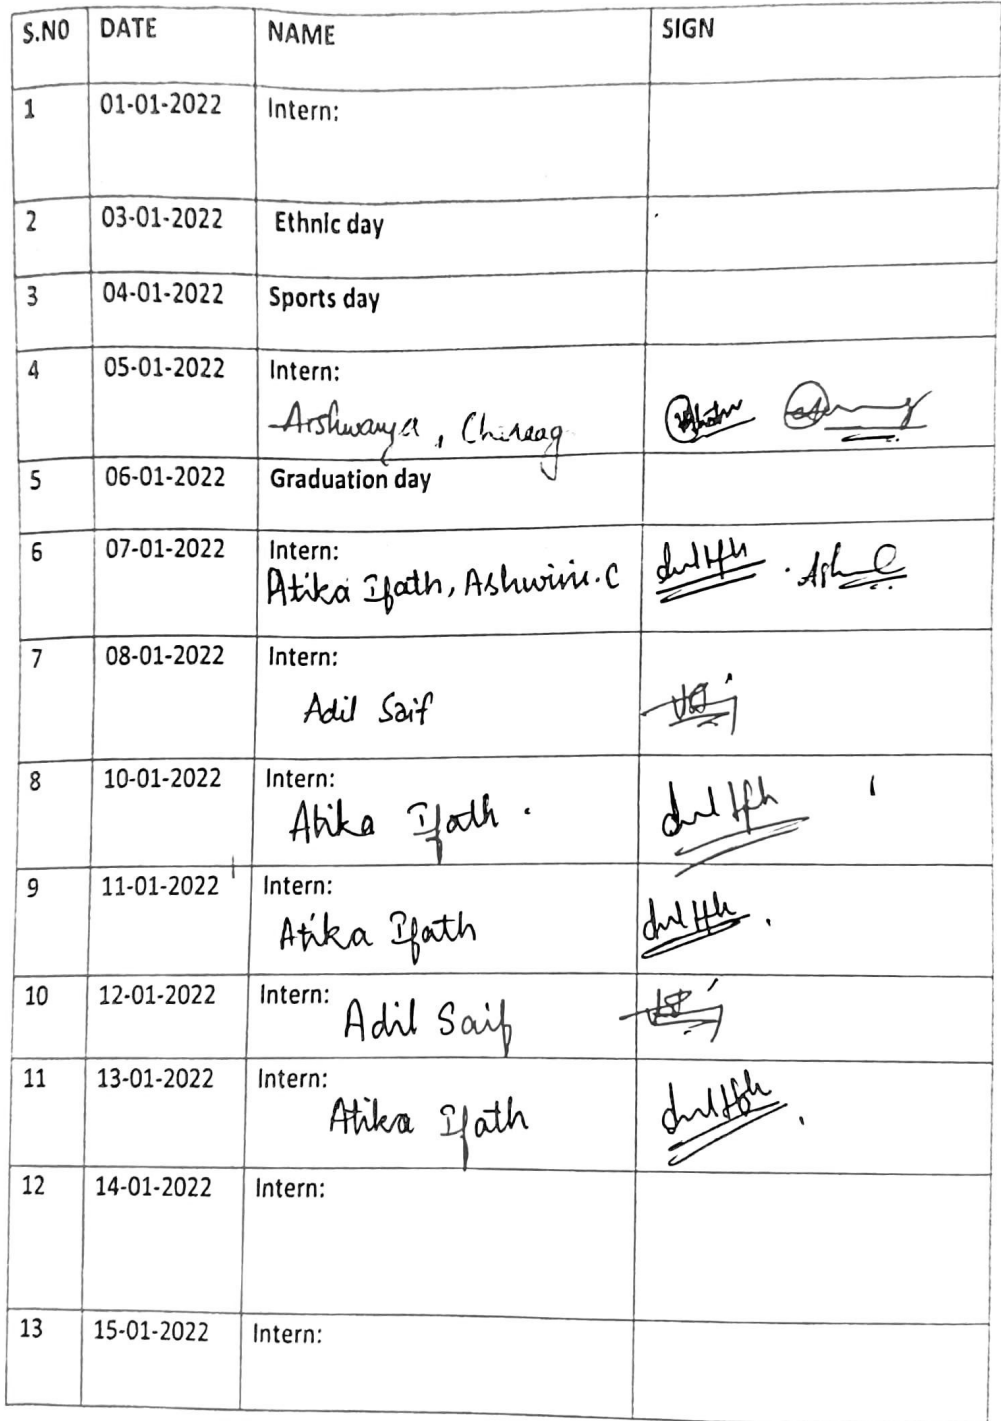 S.NO DATE NAME SIGN
1 01-01-2022 Intern:
2 03-01-2022 Ethnic day
3 04-01-2022 Sports day
4 05-01-2022 Intern:
Aishwarya, Chiraag
5 06-01-2022 Graduation day
6 07-01-2022 Intern:
Atika Ifath, Ashwini.C
7 08-01-2022 Intern:
Adil Saif
8 10-01-2022 Intern:
Atika Ifath.
9 11-01-2022 Intern:
Atika Ifath
10 12-01-2022 Intern:
Adil Saif
11 13-01-2022 Intern:
Atika Ifath
12 14-01-2022 Intern:
13 15-01-2022 Intern: